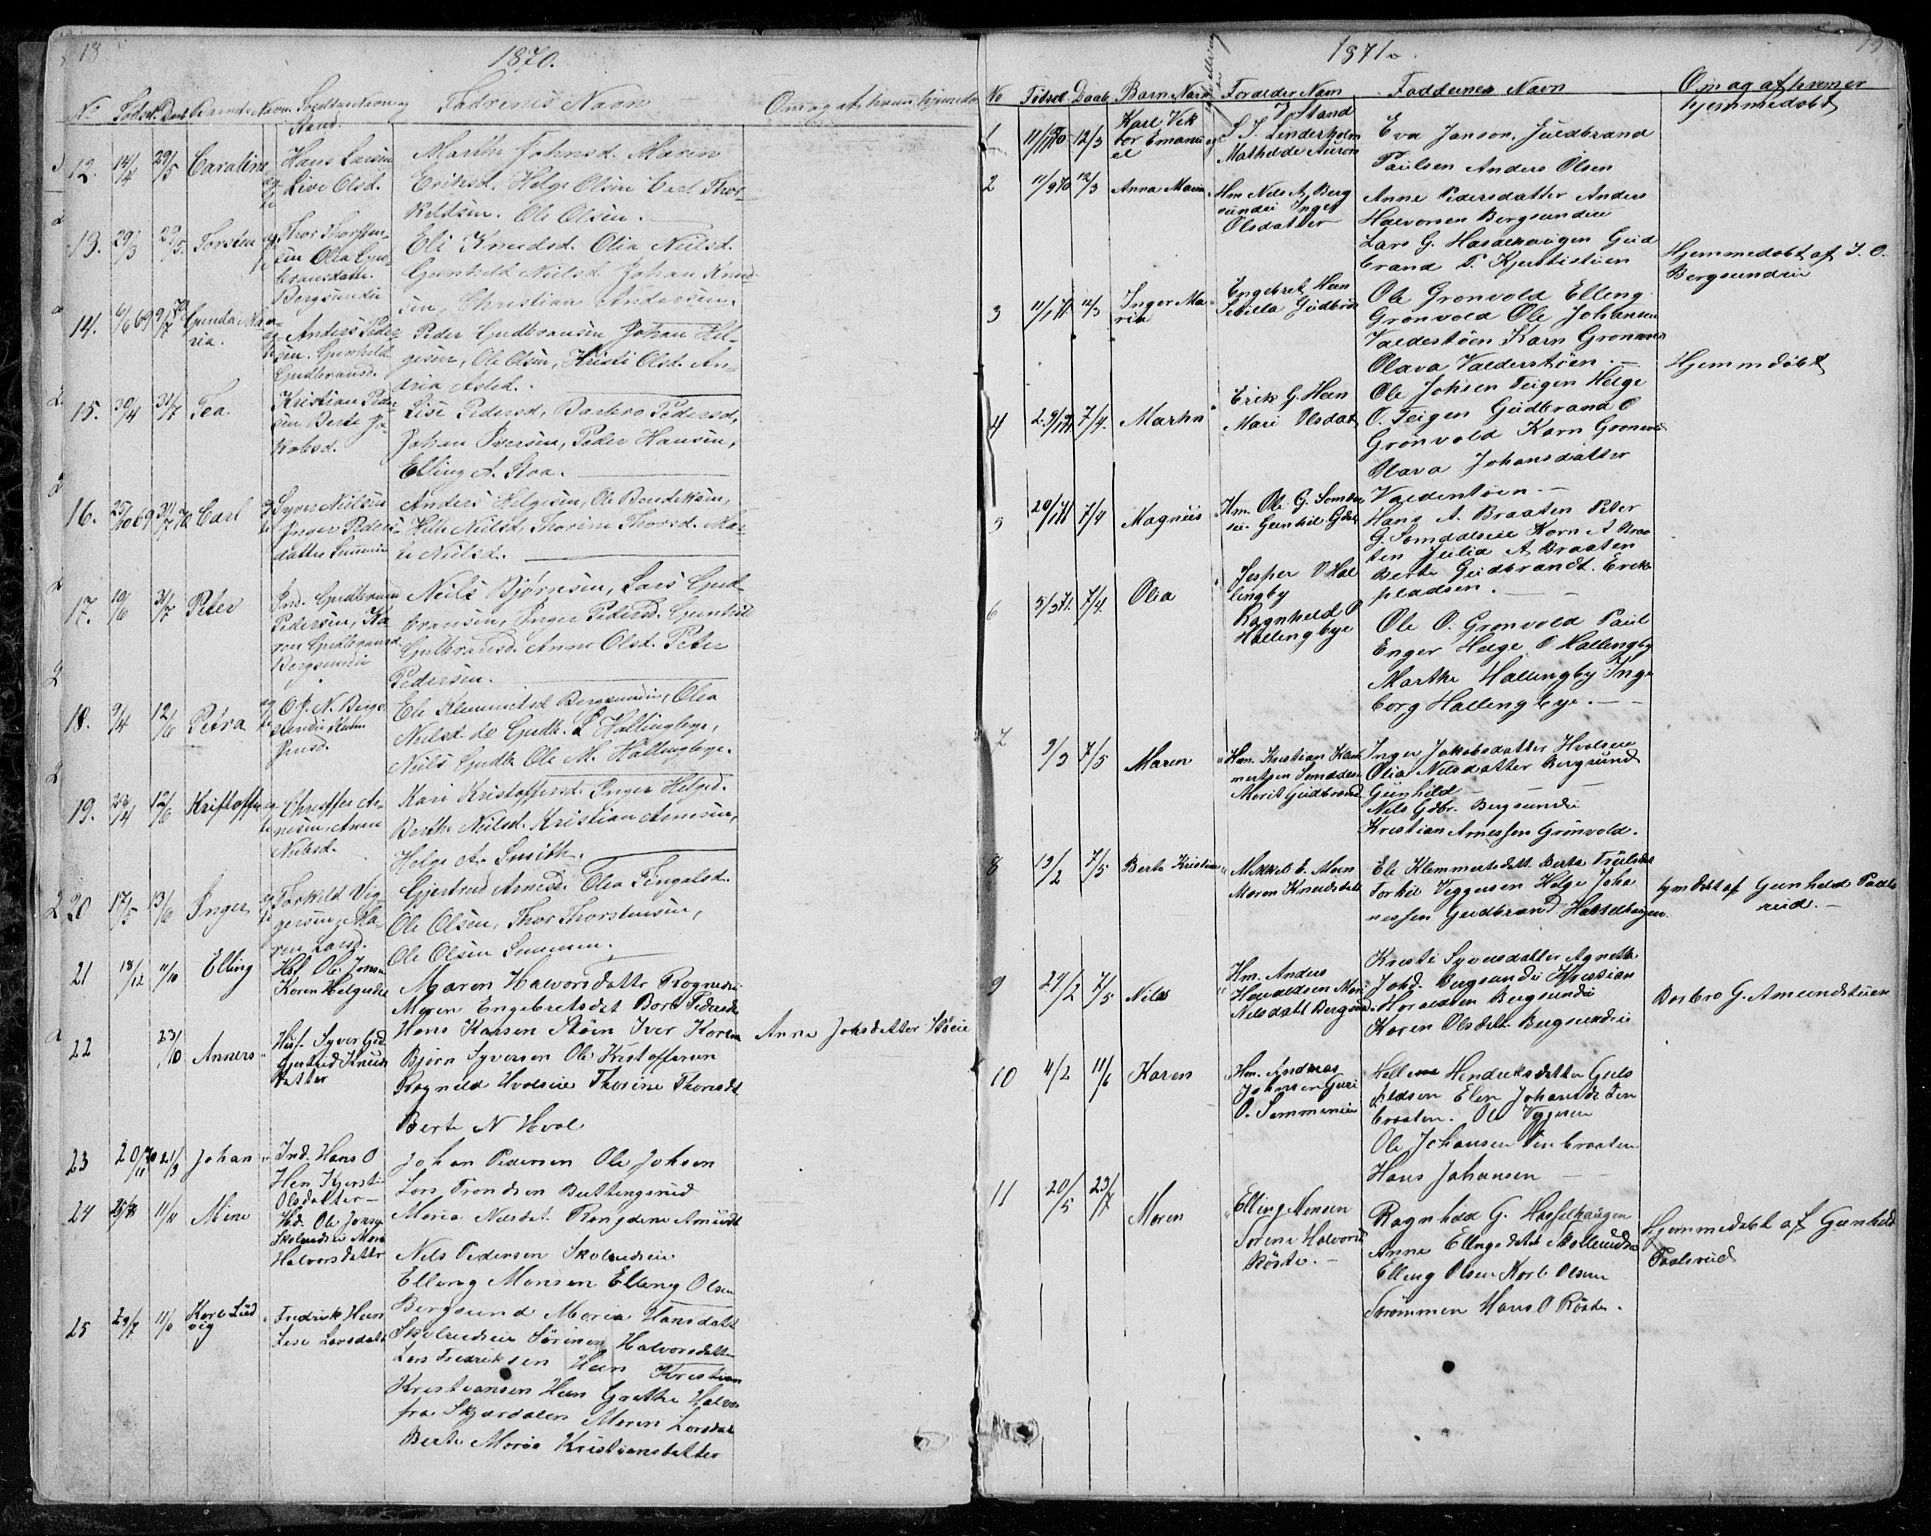 18
1870.
No Fødsel Daab Barnets Navn Forældres Navn og Stand. Faddernes Navn Om og af hvem hjemmedøbt
12. 14/4 29/5 Caroline Hans Larsen Live Olsd. Marthe Johnsd. Maren
Eriksd. Helge Olsen Carl Thor-
keldsen. Ole Olsen.
13. 29/3 29/5 Torsten Thor Thorsten-
sen Olia Gud-
bransdatter
Bergsundie
Eli Knudsd. Olia Nielsd.
Gunhild Nielsd. Johan Knud-
sen, Christian Andersen.
14. 6/6 69 9/7 70 Gunda Ma-
ria.
Anders Peder-
sen. Gunhild
Gudbransd.
Peder Gudbransen Johan Hel-
gesen, Ole Olsen, Kristi Olsd. An-
dria Asled.
15. 30/4 31/7 Tea
Kristian Peder-
sen Berte Ja-
kobsd.
Lise Pedersd, Barbro Pedersd,
Johan Iversen, Peder Hansen,
Elling A. Moa.
16. 25/10 69 31/7 70 Carl
Syver Nielsen
Inger Peders-
datter
Anders Helgesen, Ole Bendiksen,
Helle Nielsd, Thorine Thorsd. Ma-
ri Nielsd.
17. 19/6 31/7 Peter
Ind. Gudbrand
Pedersen, Ka-
ren Gudbransd
Bergsundie
Neils Bjørnsen, Lars Gud-
bransen, Inger Pedersd. Gunhild
Gulbransd. Anne Olsd. Peter
Pedersen.
18. 9/4 12/6 Petra
O. P. N. Berg-
sundie
Ele Klemmetsd. Bergsundie, Olea
Neilsd do Gudb. P Hallingbye,
Neils Gudb. Ole M. Hallingbye.
19. 23/4 12/6 Kristoffer
Christoffer Ar-
nesen, Anne
Nielsd.
Kari Kristoffersd. Inger Helged.
Berthe Neilsd. Kristian Arnesen,
Helge A. Smith.
20 17/5 13/6 Inger
Torkild Vig-
gersen, Ma-
ren Larsd.
Gjertrud Arnesd. Olea Fingalsd.
Ole Olsen, Thor Thorstensen,
Ole Olsen
21 18/12 11/10 Elling
Hsf. Ole Jonsen
Karen Helgesdat
Maren Halvorsdatter Rognerud
Maren Engebretsdat Barb Pedersda
22 23/10 Anners
Husf. Syver Gud
Gjertrud Knuds
datter
Hans Karsen Støen Iver Horen
Bjørn Syversen Ole Kristoffersen
Ragnild Hvalseie Thorine Thorsdt
Berte N Hval
Anne Johsdatter
23 20/11 70 21/3 Johan
Ind. Hans O
Hen Kjersti
Olsdatter
Johan Pedersen Ole Johsen
Lars Trondsen Buttingsrud
24 11/11 Mine
Hd. Ole Jonsen
Mari
Halvorsdatter
Maria Nilsdat. Amundt
Nils Pedersen Skolrudeie
Elling Monsen Elleng Olsen
25 29/7 11/11 Karl Lud
vig
Fredrik Heen
Lise Larsdatt
Bergsund Maria Hansdatt
Skolrudeie Sørinen Halvorsdatter
Lars Fredriksen Hen Kristian
Kristiansen Hen Grethe Halvors
fra Skjærdalen Maren Larsdat
Berte Maria Kristiansdatter
19
1871.
No Fødsel Daab Barn Navn Forelder Navn
I Stand
Faddernes Navn
Om og af hvem er
hjemmedøbt
1 11/11 70 12/3 Karl Vik
tor Emanu
el
S. S. Linderholm
Mathilde Auron
Eva Janson, Guldbrand
Paulsen Anders Olsen
2 11/9 70 12/3 Anna Maria
Hm Nils A. Berg
sundie Inger
Olsdatter
Anne Pedersdatter Anders
Halvorsen Bergsundie
Lars G. Haslehougen Gud
brand P. Kjerstistuen
Hjemmedøbt af I. O.
Bergsundie
3 12/3 Inger Ma
ria
Engebret Hen
Sebilla Gudbrds
Ole Grønvold Elleng
Grønvold Ole Johansen
Valdestøen Karn Grønvold
Olava Valderstøen.
Hjemmdøbt
4 7/4. Marthn
Erik G. Hen
Mari Olsdat
Ole Johsen Teigen Helge
O. Teigen Gudbrand O
Grønvold Karn Grønvold
Olava Johansdatter
Valdenstøen
5 20/1 71 7/4 Magnus
Hm. Ole G. Somdal
eie. Gunhil Gdbr
Hans A. Braaten Peter
G. Somdalseie Karn A Braa
ten Julia A Braaten
Berte Gudbrandt. Erik
pladsen.
6 5/3 71. 7/4. Olia
Jesper O Hal
lingby
Ragnhild P
Hallingbye
Ole O. Grønvold Paul
Enger Helge O Hallingby
Marthe Hallingby Inge
borg Hallengbye.
7 9/3 7/5 Maren
Hm. Kristian Klem
mertsen Somdales
Marit Gudbrand
Inger Jakobsdatter Hvalseie
Olia Nilsdatter Bergsund
Gunhild
Nils Gdbr. Bergsundie
Kristian Arnessen Grønvold.
8 19/2 7/5 Berte Kristine
Mikkel E. Moen
Maren Knudsdatt
Ele Klemmertsdatt Berte Truls
Torkil Viggersen Helge Joha
nessen Gudbrand Hasselhaugen.
hjmdøbt af Gunhild Pauls
rud.
9 24/2 7/5 Nils
Hm. Anders
Haraldsen Mari
Nilsdatt Bergsund
Kristi Syversdatter Agnethe
Johd. Bergsundie Kristian
Haraldsen Bergsundie
Karen Olsdatt Bergsundie
Barbro G. Amundstuen
10 4/2 11/6 Karen
Hm. Andreas
Johnsen Guri
O. Semmeneie
Hellene Hendriksdatter Guls
pladsen Elen Johansdt Ven
braaten. Ole Viggesen
Ole Johansen Venbraaten
Hans Johansen
11 20/5 23/7 Maren
Elling Monsen
Sorene Halvorsd
Røste.
Ragnhild G. Hasselhaugen
Anne Ellingsdatt Skollerudeie
Elling Olsen Karl Olsen
Strømmen Hans O Røste.
Hjemmedøbt af Gunhild
Paalsrud